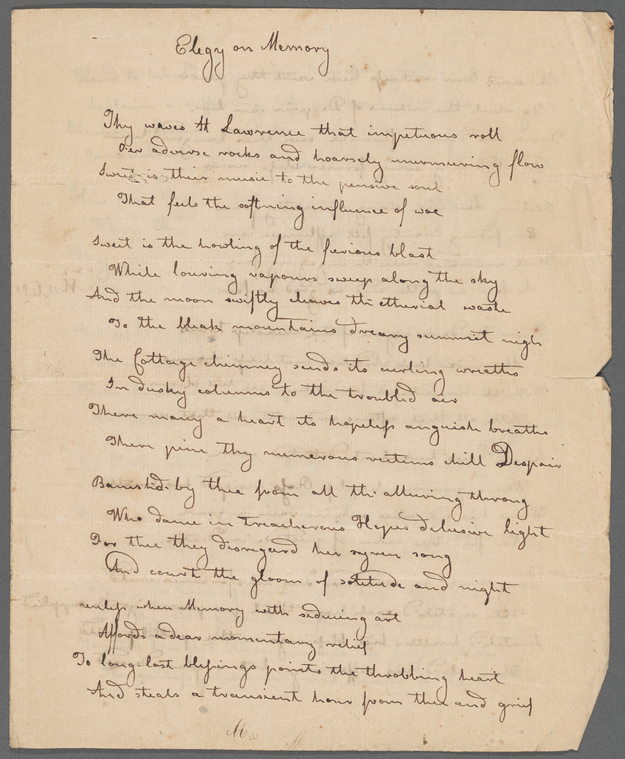 Elegy on Memory
Thy waves St Lawrence that impetuous roll
O'er adverse rocks and hoarsely murmuring flow
Sweet is their music to the pensive soul
That feels the softning influence of woe
Sweet is the howling of the furious blast
While louring vapours sweep along the sky
And the moon swiftly cleaves the etherial waste
To the bleak mountains dreary summit nigh
The Cottage chimney sends its curling wreaths
In dusky columns to the troubled air
There many a heart its hopeless anguish breaths
There pine thy numerous victims chill Despair
Banished by thee from all the alluring throng
Who dance in treacherous Hopes delusive light
For thee they disregard her syren song
And court the gloom of solitude and night
unless when Memory with seducing art
Affords a dear momentary relief
To long lost blessings points the throbbing heart
And steals a transient hour from thee and grief